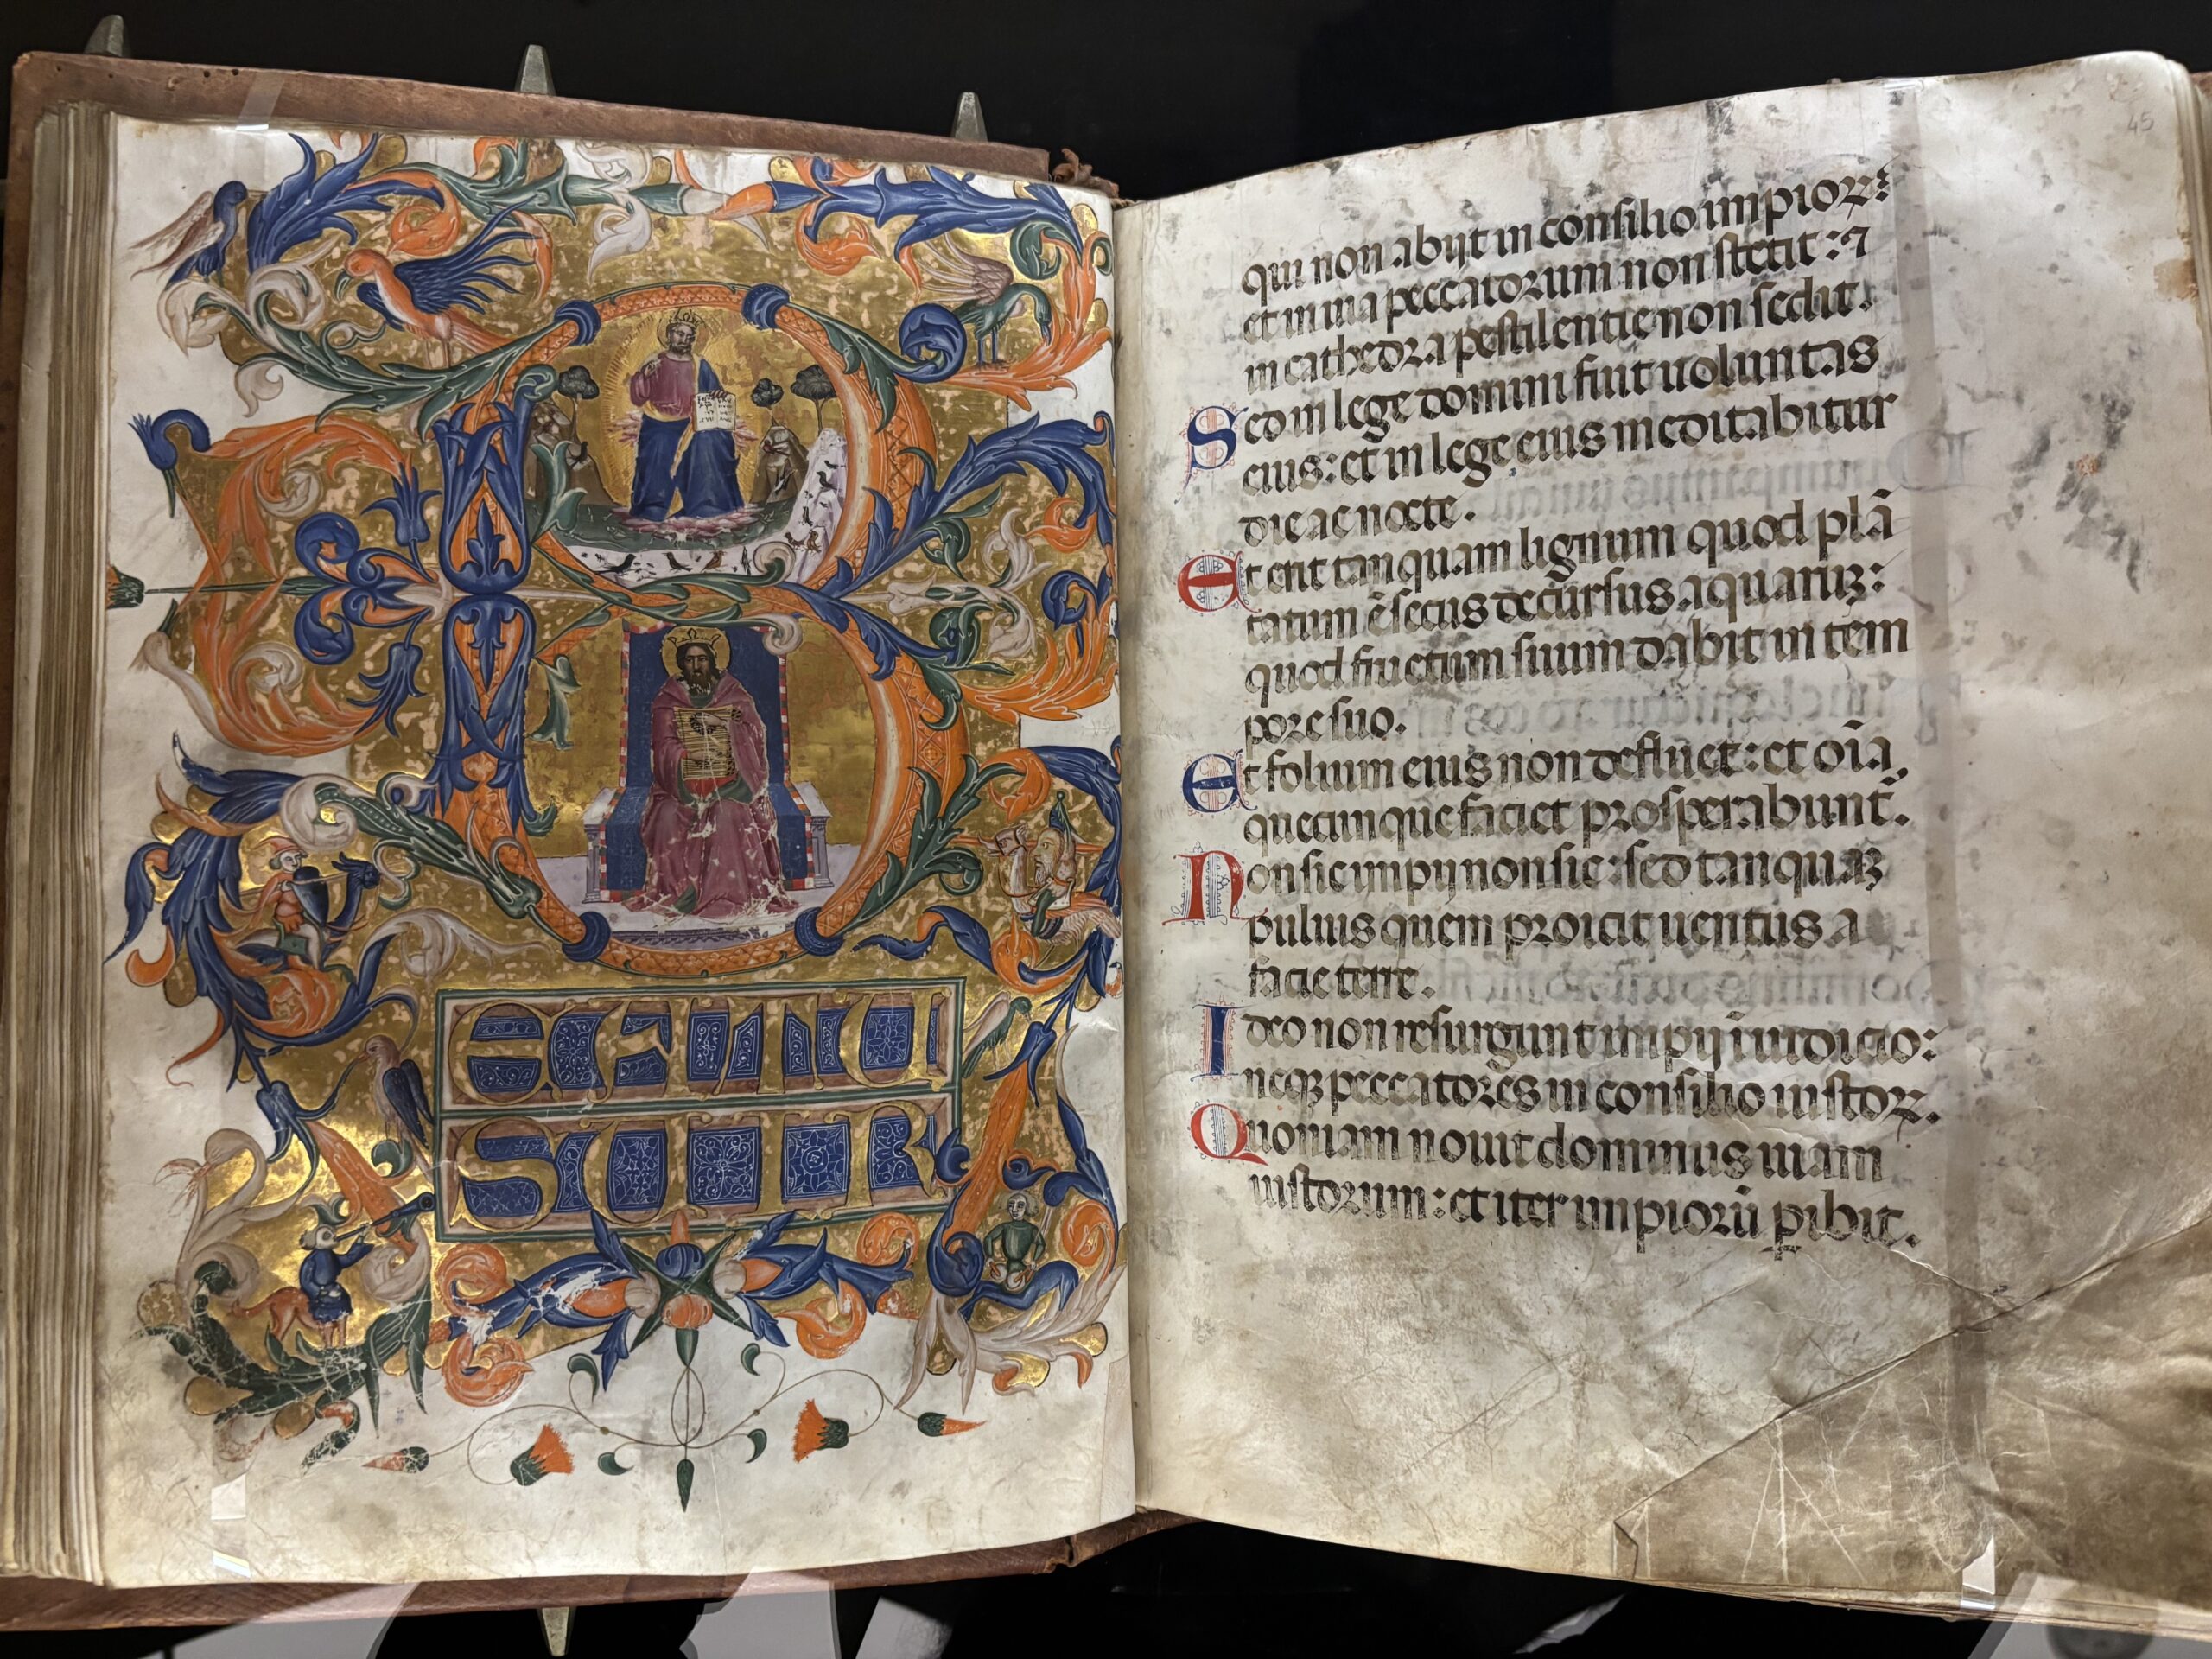 B
EATU
S UIR
45
qui non abijt in consilio impioꝝ:
et in uia peccatorum non stetit: ⁊
in cathedra pestilentie non sedit.
Sed in lege domini fuit uoluntas
eius: et in lege eius meditabitur
die ac nocte.
Et erit tanquam lignum quod plā
tatum ē secus decursus aquaruꝫ:
quod fructum suum dabit in tem
pore suo.
Et folium eius non defluet: et oīa
quecunque faciet prosperabunt̄.
Non sic impij non sic: sed tanquaꝫ
puluis quem proicit uentus a
facie terre.
Ideo non resurgunt impij ī iudicio:
neqꝫ peccatores in consilio iustoꝝ.
Quoniam nouit dominus uiam
iustorum: et iter impiorū ꝑibit.